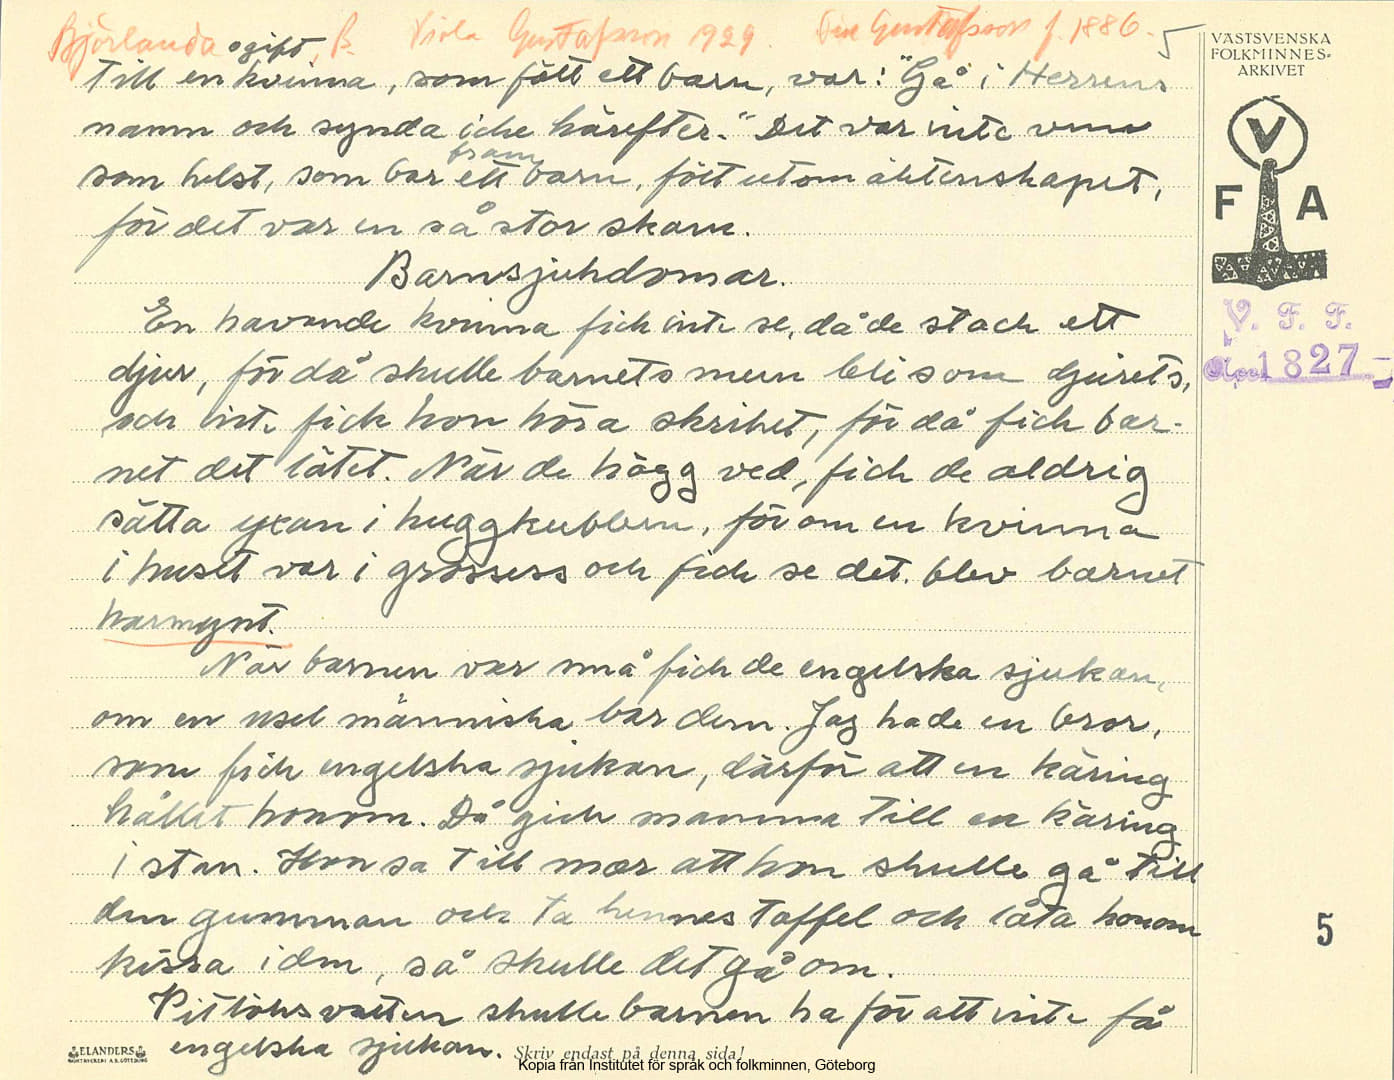 Björlanda B. Viola Gustafsson 1929. Gustafsson f. 1886. 5
ogift
till en kvinna, som fött ett barn, var: "Gå i Herrens
namn och synda icke härefter." Det var inte vem
fram
som helst, som bar ett barn, fött utom äktenskapet,
för det var en så stor skam.
Barnsjukdomar.
En havande kvinna fick inte se, då de stack ett
djur, för då skulle barnets mun bli som djurets,
och inte fick hon höra skriket, för då fick bar-
net det lätet. När de högg ved, fick de aldrig
sätta yxan i huggkubben, för om en kvinna
i huset var i grossess och fick se det, blev barnet
harmynt.
När barnen var små fick de engelska sjukan,
om en usel människa bar dem. Jag hade en bror,
som fick engelska sjukan, därför att en käring
hållet honom. Då gick mamma till en käring
i stan. Hon sa till mor att hon skulle gå till
den gumman och ta hennes toffel och låta honom
kissa i den, så skulle det gå om.
vatten skulle barnen ha för att inte få
engelska sjukan.
VÄSTSVENSKA
FOLKMINNES-
ARKIVET
V
F A
V. F. F.
1827
5
ELANDERS
BOKTRYCKERI A.B. GÖTEBORG
Skriv endast på denna sida!
Kopia från Institutet för språk och folkminnen, Göteborg